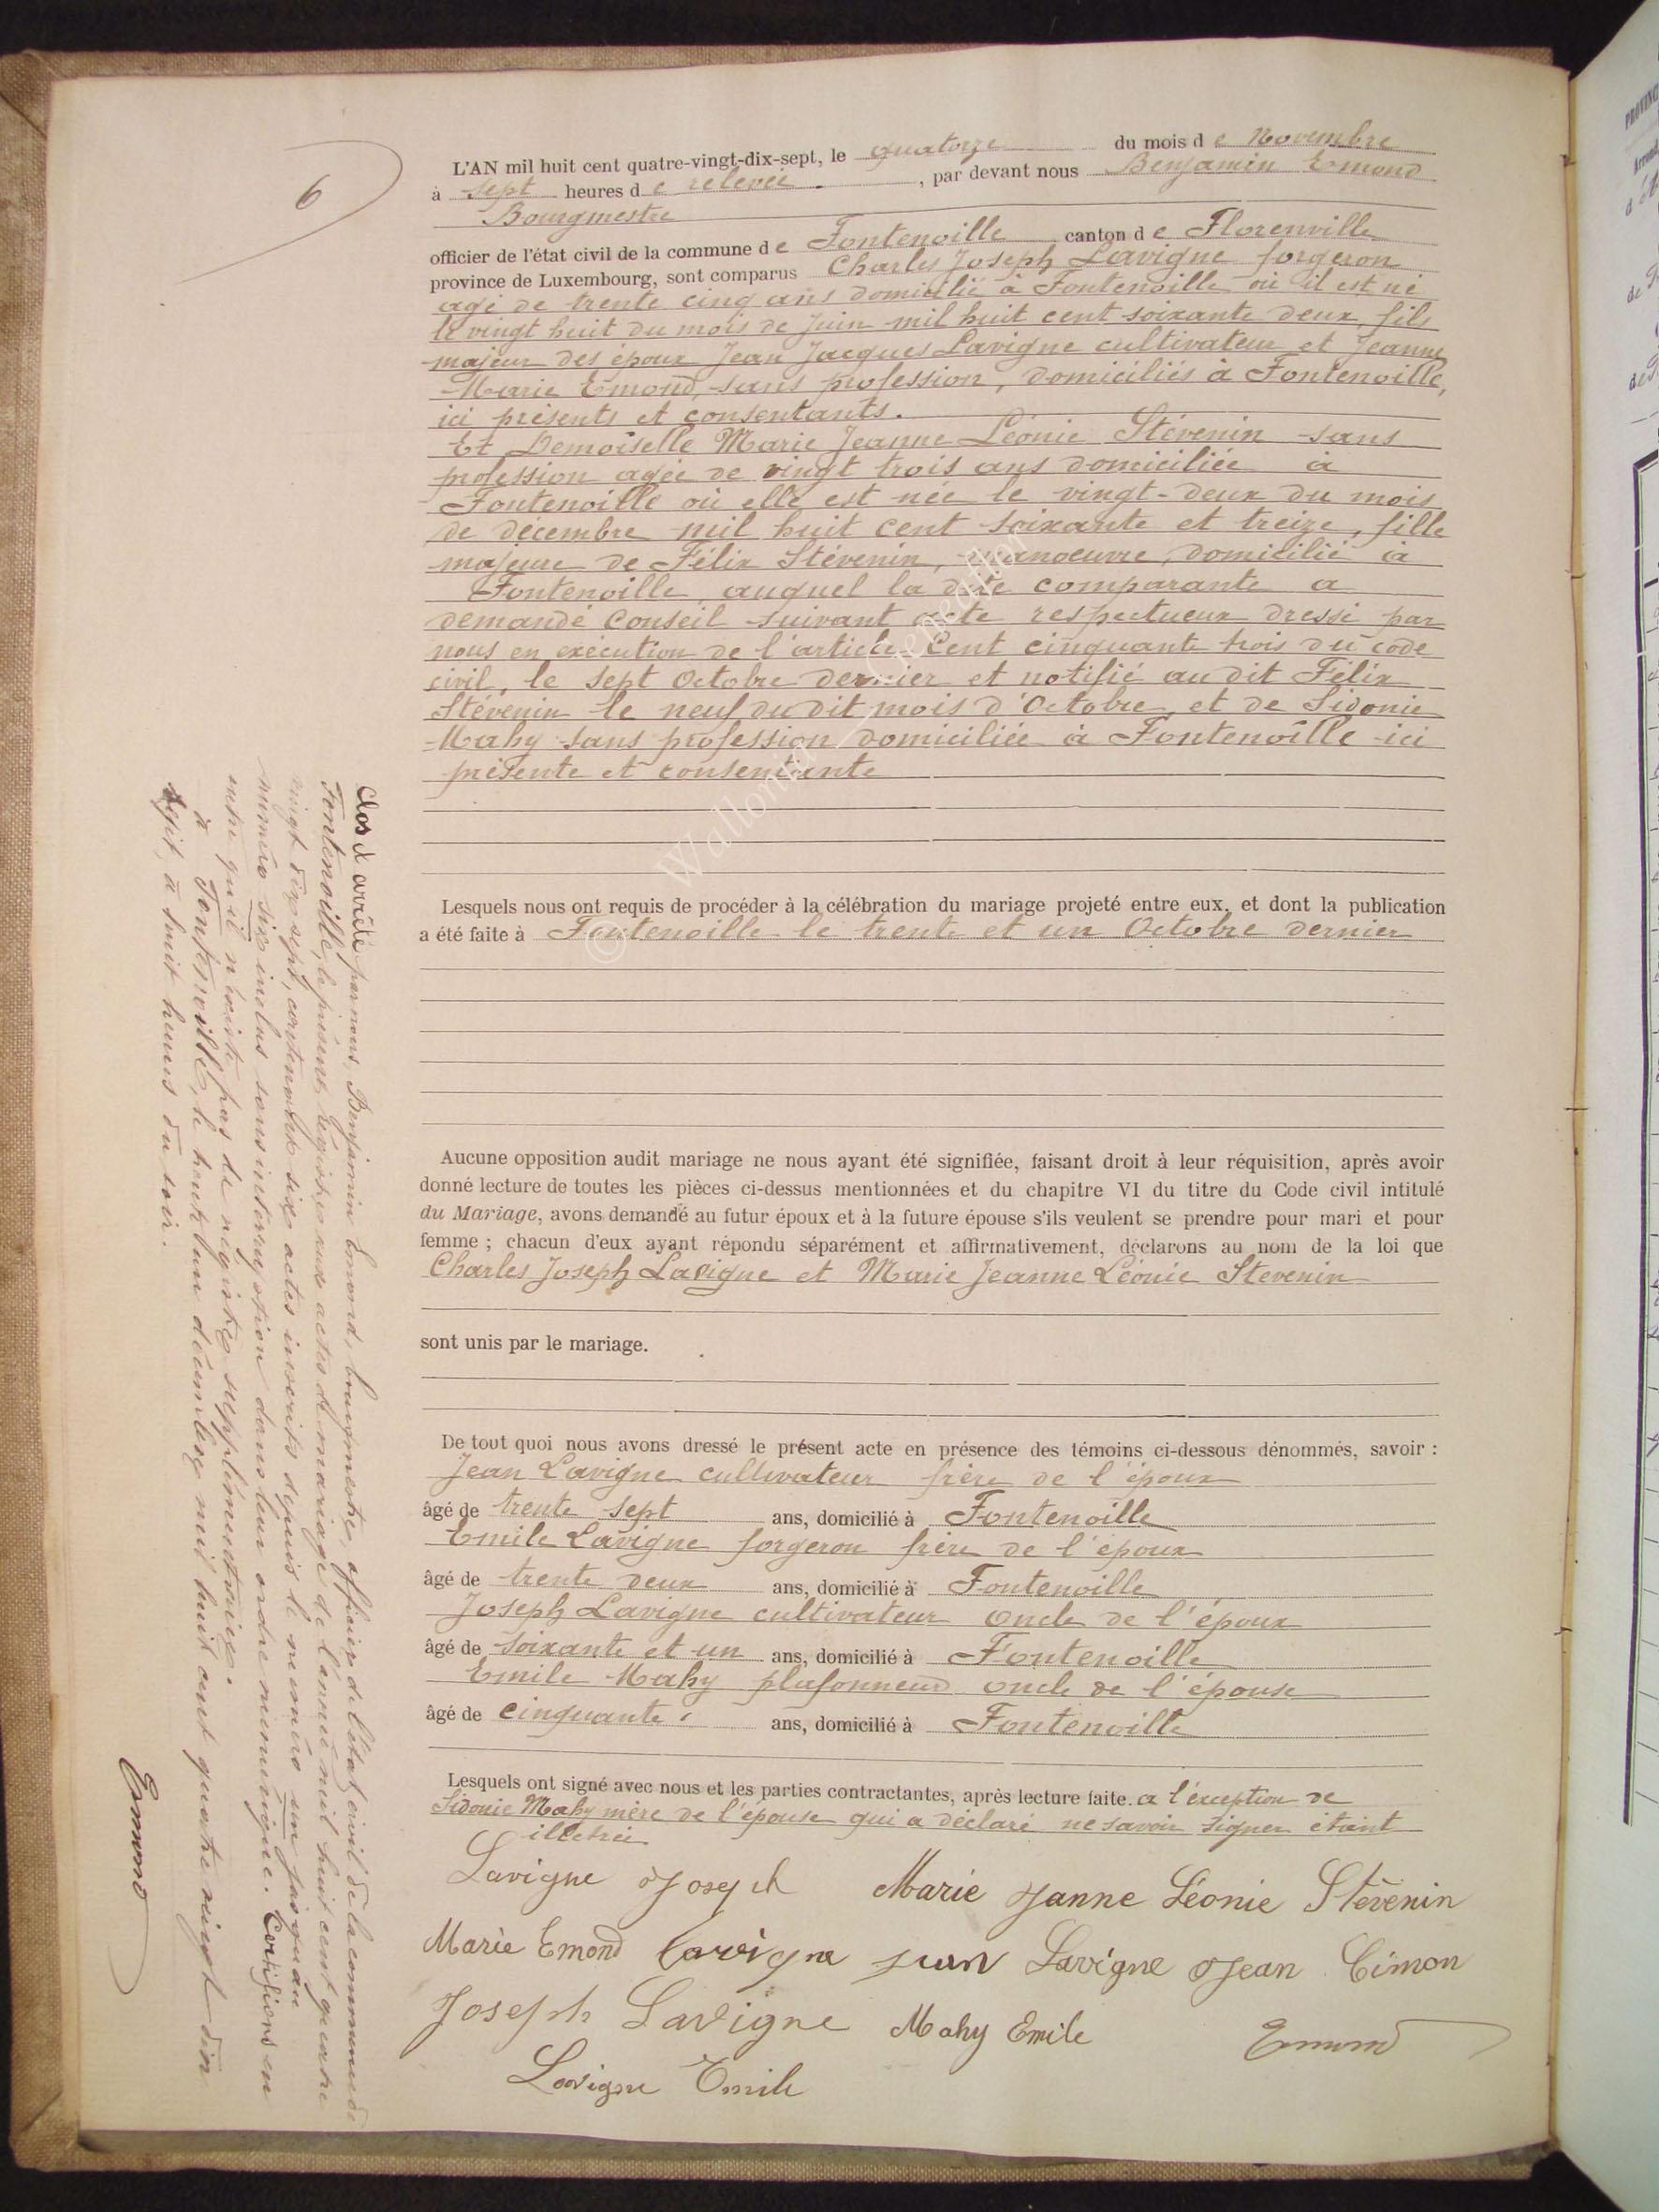 6
L'AN mil huit cent quatre-vingt-dix-sept, le quatorze du mois d e Novembre
à sept heures d e relevée . , par devant nous Benjamin Emond
Bourgmestre
officier de l'état civil de la commune d e Fontenoille canton d e Florenville
province de Luxembourg, sont comparus Charles Joseph Lavigne forgeron
agé de trente cinq ans domicilié à Fontenoille où il est né
le vingt huit du mois de Juin mil huit cent soixante deux fils
majeur des époux Jean Jacques Lavigne cultivateur et Jeanne
Marie Emond, sans profession, domiciliés à Fontenoille,
ici présents et consentants.
Et Demoiselle Marie Jeanne Léonie Stévenin sans
profession agée de vingt trois ans domiciliée à
Fontenoille où elle est née le vingt-deux du mois
de décembre mil huit cent soixante et treize, fille
majeure de Félix Stévenin, manoeuvre, domicilié à
Fontenoille, auquel la dite comparante a
demandé Conseil suivant acte respectueux dressé par
nous en exécution de l'article Cent cinquante trois du code
civil, le sept Octobre dernier et notifié au dit Félix
Stévenin le neuf du dit mois d'Octobre, et de Sidonie
Mahy sans profession domiciliée à Fontenoille ici
présente et consentante
Lesquels nous ont requis de procéder à la célébration du mariage projeté entre eux, et dont la publication
a été faite à Fontenoille le trente et un Octobre dernier
Aucune opposition audit mariage ne nous ayant été signifiée, faisant droit à leur réquisition, après avoir
donné lecture de toutes les pièces ci-dessus mentionnées et du chapitre VI du titre du Code civil intitulé
du Mariage, avons demandé au futur époux et à la future épouse s'ils veulent se prendre pour mari et pour
femme ; chacun d'eux ayant répondu séparément et affirmativement, déclarons au nom de la loi que
Charles Joseph Lavigne et Marie Jeanne Léonie Stevenin
sont unis par le mariage.
De tout quoi nous avons dressé le présent acte en présence des témoins ci-dessous dénommés, savoir :
Jean Lavigne cultivateur frère de l'époux
âgé de trente sept ans, domicilié à Fontenoille
Emile Lavigne forgeron frère de l'époux
âgé de trente deux ans, domicilié à Fontenoille
Joseph Lavigne cultivateur oncle de l'époux
âgé de soixante et un ans, domicilié à Fontenoille
Emile Mahy plafonneur oncle de l'épouse
âgé de cinquante ans, domicilié à Fontenoille
Lesquels ont signé avec nous et les parties contractantes, après lecture faite. a l'exception de
Sidonie Mahy mère de l'épouse qui a déclaré ne savoir signer étant
illettrée
Lavigne Joseph Marie Janne Léonie Stévenin
Marie Emond Lavigne jean Lavigne Jean Cimon
Joseph Lavigne Mahy Emile Emond
Lavigne Emile
Clos & arrêté par nous, Benjamin Emond, bourgmestre, officier de l'état civil de la commune de
Fontenoille, le présent registre aux actes de mariage de l'année mil huit cent quatre
vingt dix sept, contenant six actes inscrits depuis le numéro un jusqu'au
numéro six inclus sans interruption dans leur ordre numérique. Certifions en
outre qu'il n'existe pas de registre supplémentaire.
à Fontenoille, le trente un décembre mil huit cent quatre vingt dix
sept, à huit heures du soir.
Emond